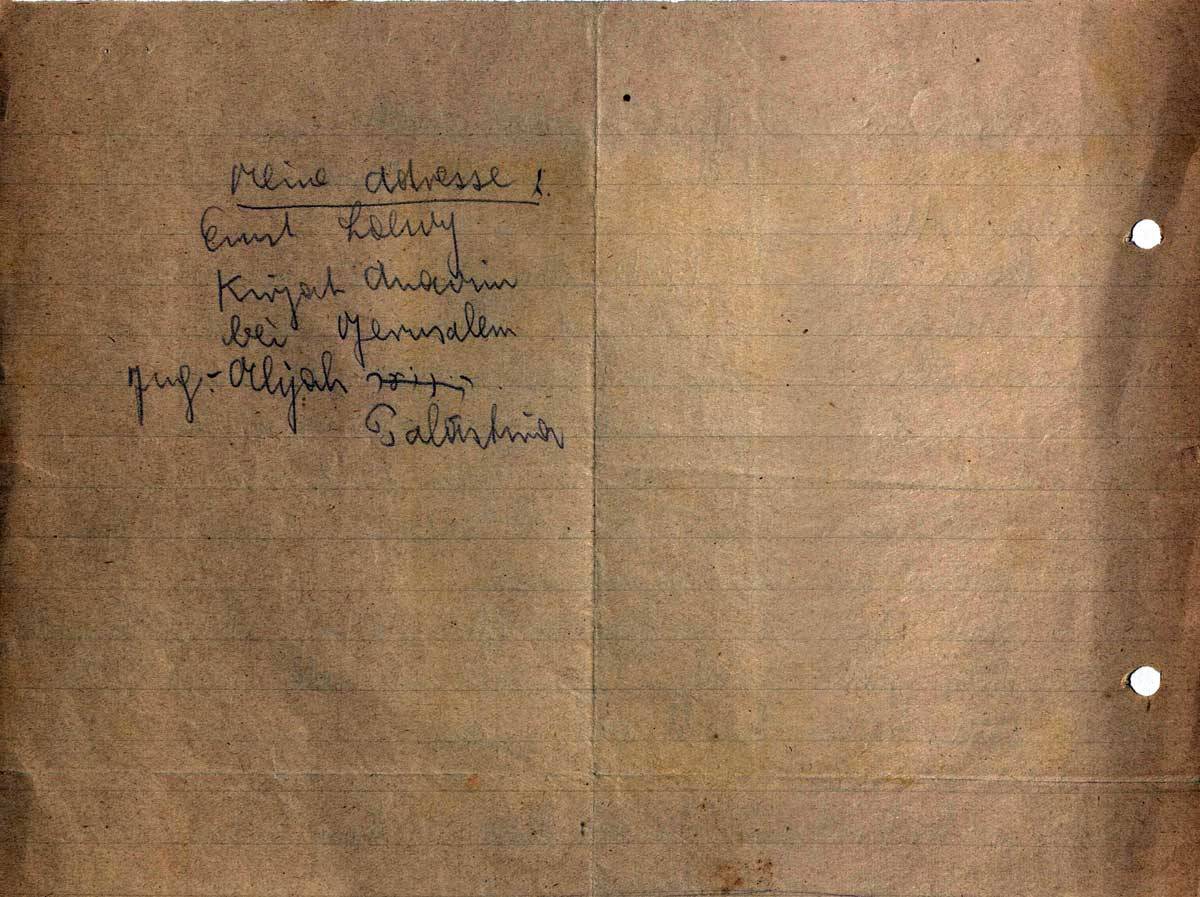 Meine Adresse!
Ernst Loewy
Kirjat Anavim
bei Jerusalem
Jug.-Alijah
Palästina